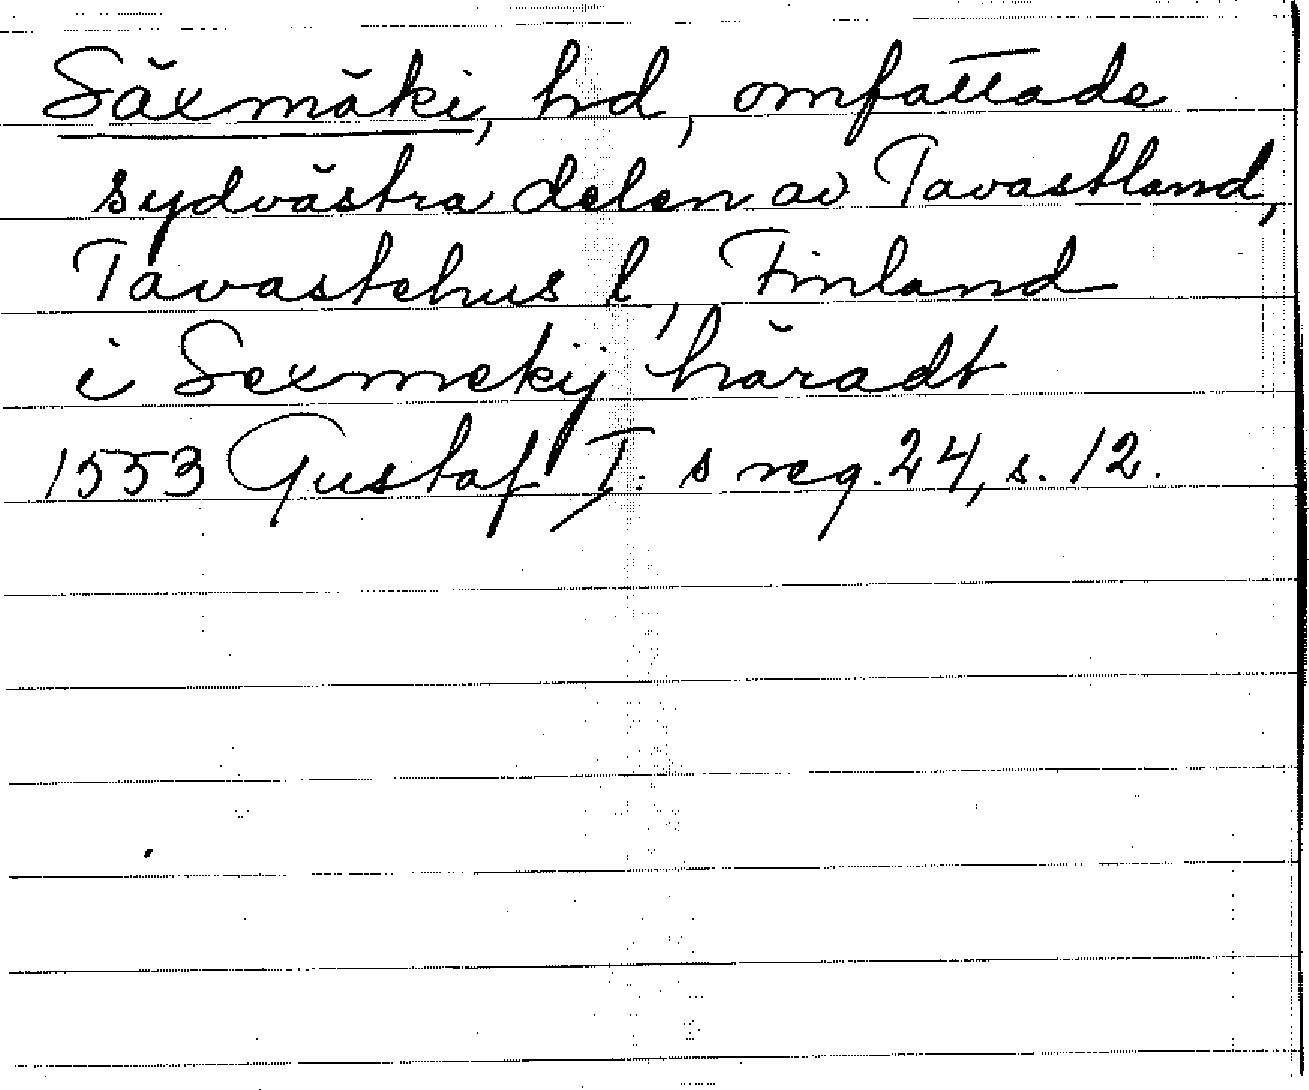 Säxmäki, hd, omfattade
sydvästra delen av Tavastland,
Tavastehus l, Finland
i Sexmekij häradt
1553 Gustaf I: s reg. 24, s. 12.